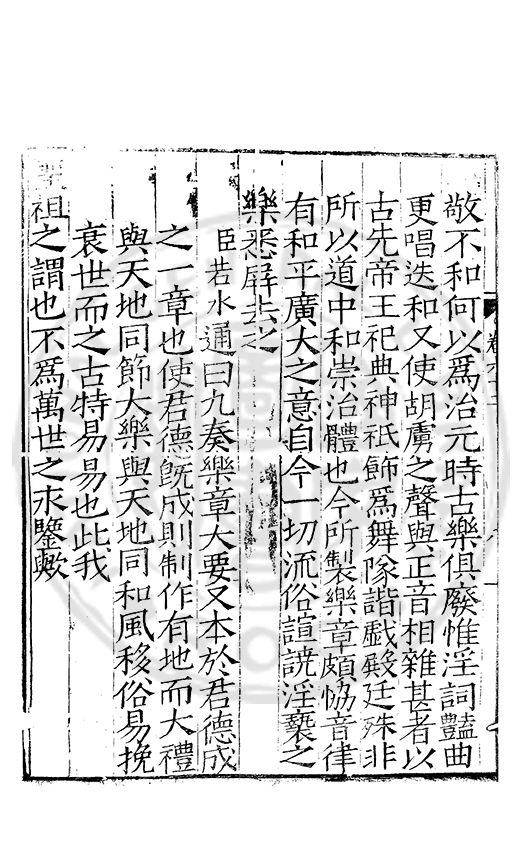 敬不和何以爲治元時古樂俱廢惟淫詞豔曲
更唱迭和又使胡虜之聲與正音相雜甚者以
古先帝王祀典神祇飾爲舞隊諧戲殿廷殊非
所以道中和崇治體也今所製樂章頗協音律
有和平廣大之意自今一切流俗諠譊淫褻之
樂悉屛去之
臣若水通曰九奏樂章大要又本於君德成
之一章也使君德旣成則制作有地而大禮
與天地同節大樂與天地同和風移俗易挽
衰世而之古特易易也此我
聖祖之謂也不爲萬世之永鑒歟
卷六十三